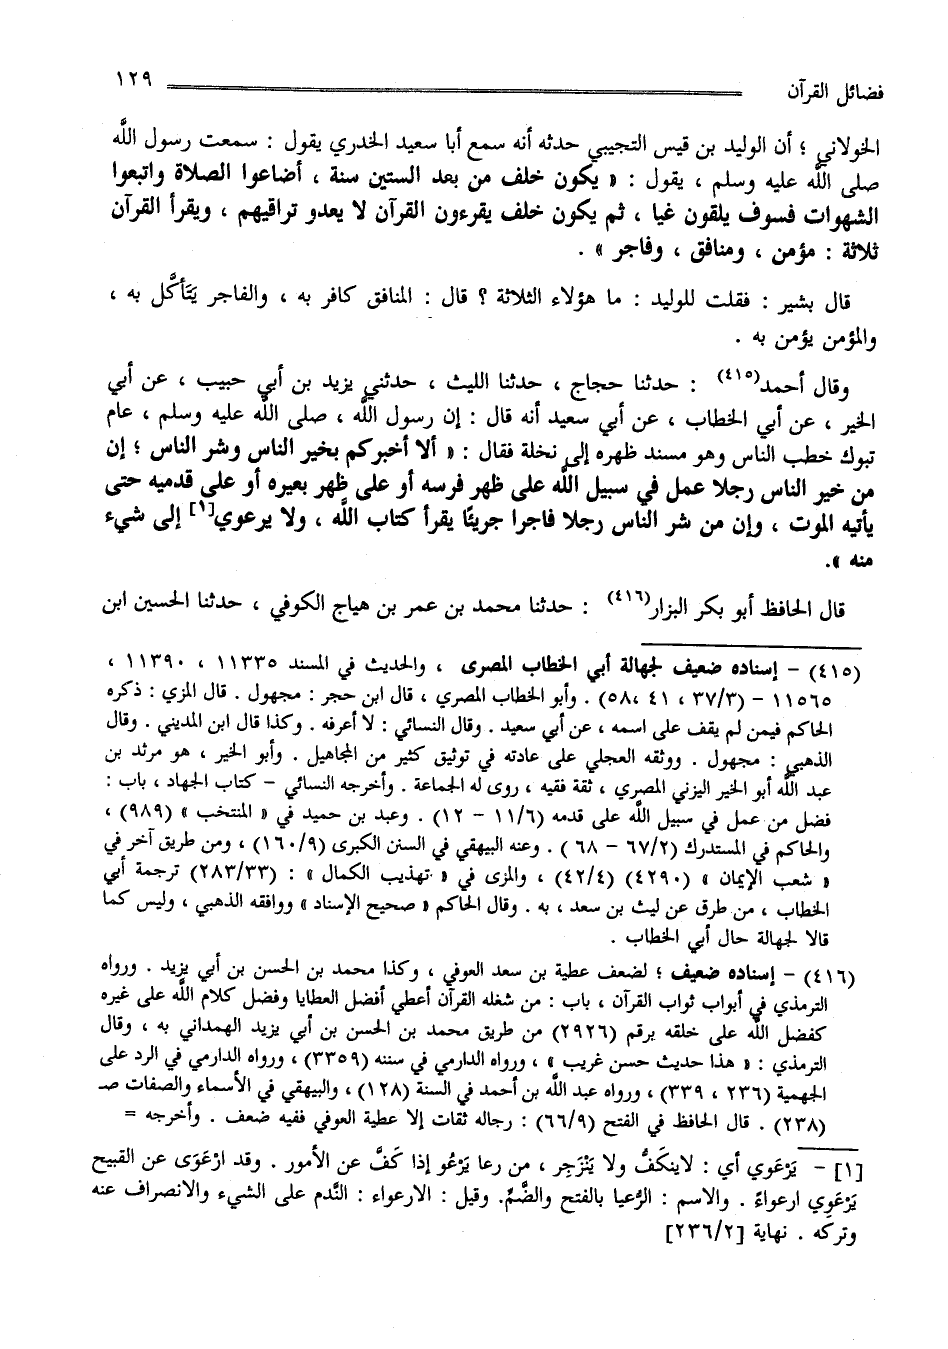 فضائل القرآن ١٢٩
الخولاني ؛ أن الوليد بن قيس التجيبي حدثه أنه سمع أبا سعيد الخدري يقول : سمعت رسول اللَّه
صلى اللَّه عليه وسلم ، يقول : « يكون خلف من بعد الستين سنة ، أضاعوا الصلاة واتبعوا
الشهوات فسوف يلقون غيا ، ثم يكون خلف يقرءون القرآن لا يعدو تراقيهم ، ويقرأ القرآن
ثلاثة : مؤمن ، ومنافق ، وفاجر » .
قال بشير : فقلت للوليد : ما هؤلاء الثلاثة ؟ قال : المنافق كافر به ، والفاجر يَتَأَكَّل به ،
والمؤمن يؤمن به .
وقال أحمد(٤١٥) : حدثنا حجاج ، حدثنا الليث ، حدثني يزيد بن أبي حبيب ، عن أبي
الخير ، عن أبي الخطاب ، عن أبي سعيد أنه قال : إن رسول اللَّه ، صلى اللَّه عليه وسلم ، عام
تبوك خطب الناس وهو مسند ظهره إلى نخلة فقال : « ألا أخبركم بخير الناس وشر الناس ؛ إن
من خير الناس رجلا عمل في سبيل اللَّه على ظهر فرسه أو على ظهر بعيره أو على قدميه حتى
يأتيه الموت ، وإن من شر الناس رجلا فاجرا جريئًا يقرأ كتاب اللَّه ، ولا يرعوي[١] إلى شيء
منه ».
قال الحافظ أبو بكر البزار(٤١٦) : حدثنا محمد بن عمر بن هياج الكوفي ، حدثنا الحسين ابن
(٤١٥) - إسناده ضعيف لجهالة أبي الخطاب المصرى ، والحديث في المسند ١١٣٣٥ ، ١١٣٩٠ ،
١١٥٦٥ - (٣٧/٣ ، ٤١ ،٥٨) . وأبو الخطاب المصري ، قال ابن حجر : مجهول . قال المزي : ذكره
الحاكم فيمن لم يقف على اسمه ، عن أبي سعيد . وقال النسائي : لا أعرفه . وكذا قال ابن المديني . وقال
الذهبي : مجهول . ووثقه العجلي على عادته في توثيق كثير من المجاهيل . وأبو الخير ، هو مرثد بن
عبد اللَّه أبو الخير اليزني المصري ، ثقة فقيه ، روى له الجماعة . وأخرجه النسائي - كتاب الجهاد ، باب :
فضل من عمل في سبيل اللَّه على قدمه (١١/٦ - ١٢) . وعبد بن حميد في « المنتخب » (٩٨٩) ،
والحاكم في المستدرك (٦٧/٢ - ٦٨ ) . وعنه البيهقي في السنن الكبرى (١٦٠/٩) ، ومن طريق آخر في
« شعب الإيمان » (٤٢٩٠) (٤٢/٤) ، والمزى في « تهذيب الكمال » : (٢٨٣/٣٣) ترجمة أبي
الخطاب ، من طرق عن ليث بن سعد ، به . وقال الحاكم « صحيح الإسناد » ووافقه الذهبي ، وليس كما
قالا لجهالة حال أبي الخطاب .
(٤١٦) - إسناده ضعيف ؛ لضعف عطية بن سعد العوفي ، وكذا محمد بن الحسن بن أبي يزيد . ورواه
الترمذي في أبواب ثواب القرآن ، باب : من شغله القرآن أعطي أفضل العطايا وفضل كلام اللَّه على غيره
كفضل اللَّه على خلقه برقم (٢٩٢٦) من طريق محمد بن الحسن بن أبي يزيد الهمداني به ، وقال
الترمذي : « هذا حديث حسن غريب » ، ورواه الدارمي في سننه (٣٣٥٩) ، ورواه الدارمي في الرد على
الجهمية (٢٣٦ ، ٣٣٩) ، ورواه عبد اللَّه بن أحمد في السنة (١٢٨) ، والبيهقي في الأسماء والصفات صـ
(٢٣٨) . قال الحافظ في الفتح (٦٦/٩) : رجاله ثقات إلا عطية العوفي ففيه ضعف . وأخرجه =
[١] - يَرْعَوي أي : لاينكَفُّ ولا يَنْزَجِر ، من رعا يَرْعُو إذا كَفَّ عن الأمور . وقد ارْعَوَى عن القبيح
يَرْعَوِي ارعواءً . والاسم : الرُّعيا بالفتح والضَّمِّ. وقيل : الارعواء : النَّدم على الشيء والانصراف عنه
وتركه . نهاية [٢٣٦/٢]